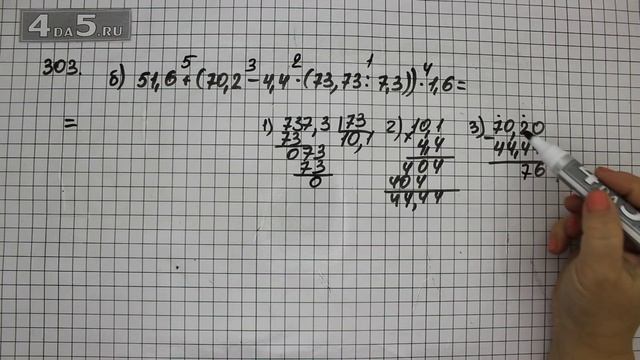 4DA5.RU
303. б) 51,6 + (70,2 − 4,4 · (73,73 : 7,3)) · 1,6 =
5 3 2 1 4
=
1) 737,3 | 73
73 10,1
073
73
0
2) 10,1
× 4,4
404
404
44,44
3) 70,20
− 44,4
76